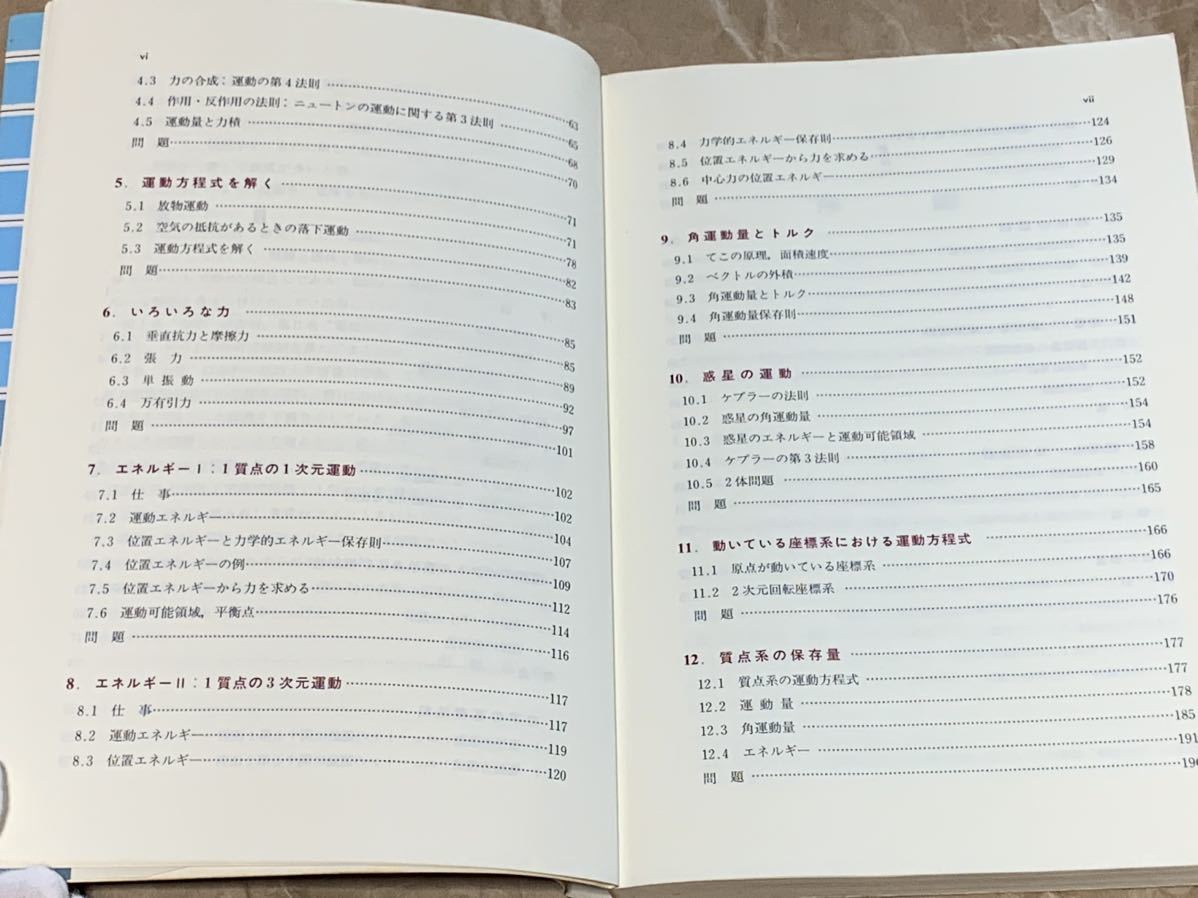 vi
4.3 力の合成：運動の第4法則……63
4.4 作用・反作用の法則：ニュートンの運動に関する第3法則……65
4.5 運動量と力積……68
問 題……70
5. 運動方程式を解く……71
5.1 放物運動……71
5.2 空気の抵抗があるときの落下運動……78
5.3 運動方程式を解く……82
問 題……83
6. いろいろな力……85
6.1 垂直抗力と摩擦力……85
6.2 張 力……89
6.3 単振動……92
6.4 万有引力……97
問 題……101
7. エネルギーI：1質点の1次元運動……102
7.1 仕 事……102
7.2 運動エネルギー……104
7.3 位置エネルギーと力学的エネルギー保存則……107
7.4 位置エネルギーの例……109
7.5 位置エネルギーから力を求める……112
7.6 運動可能領域，平衡点……114
問 題……116
8. エネルギーII：1質点の3次元運動……117
8.1 仕 事……117
8.2 運動エネルギー……119
8.3 位置エネルギー……120
vii
8.4 力学的エネルギー保存則……124
8.5 位置エネルギーから力を求める……126
8.6 中心力の位置エネルギー……129
問 題……134
9. 角運動量とトルク……135
9.1 てこの原理，面積速度……135
9.2 ベクトルの外積……139
9.3 角運動量とトルク……142
9.4 角運動量保存則……148
問 題……151
10. 惑星の運動……152
10.1 ケプラーの法則……152
10.2 惑星の角運動量……154
10.3 惑星のエネルギーと運動可能領域……154
10.4 ケプラーの第3法則……158
10.5 2体問題……160
問 題……165
11. 動いている座標系における運動方程式……166
11.1 原点が動いている座標系……166
11.2 2次元回転座標系……170
問 題……176
12. 質点系の保存量……177
12.1 質点系の運動方程式……177
12.2 運動量……178
12.3 角運動量……185
12.4 エネルギー……191
問 題……196